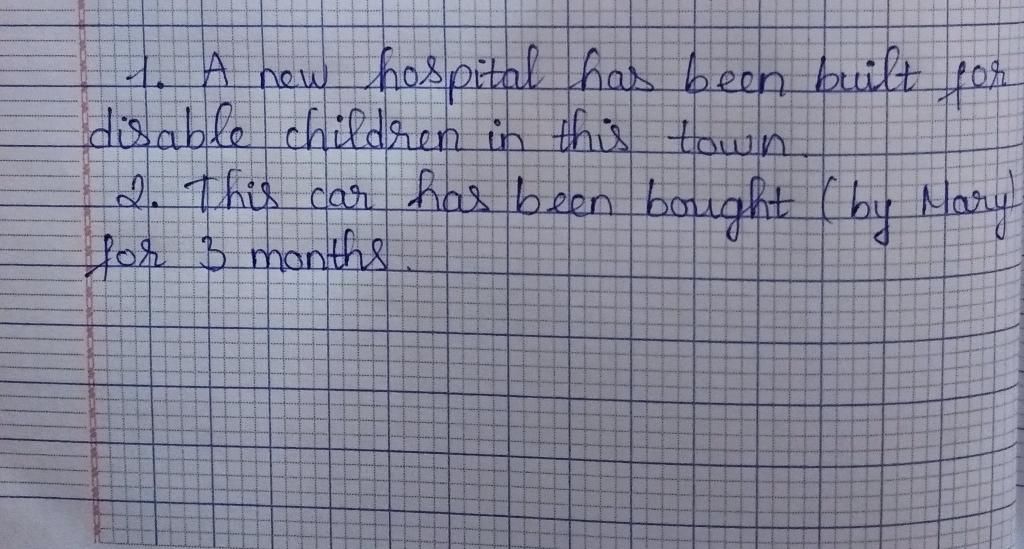 1. A new hospital has been built for
disable children in this town.
2. This car has been bought (by Mary)
for 3 months.